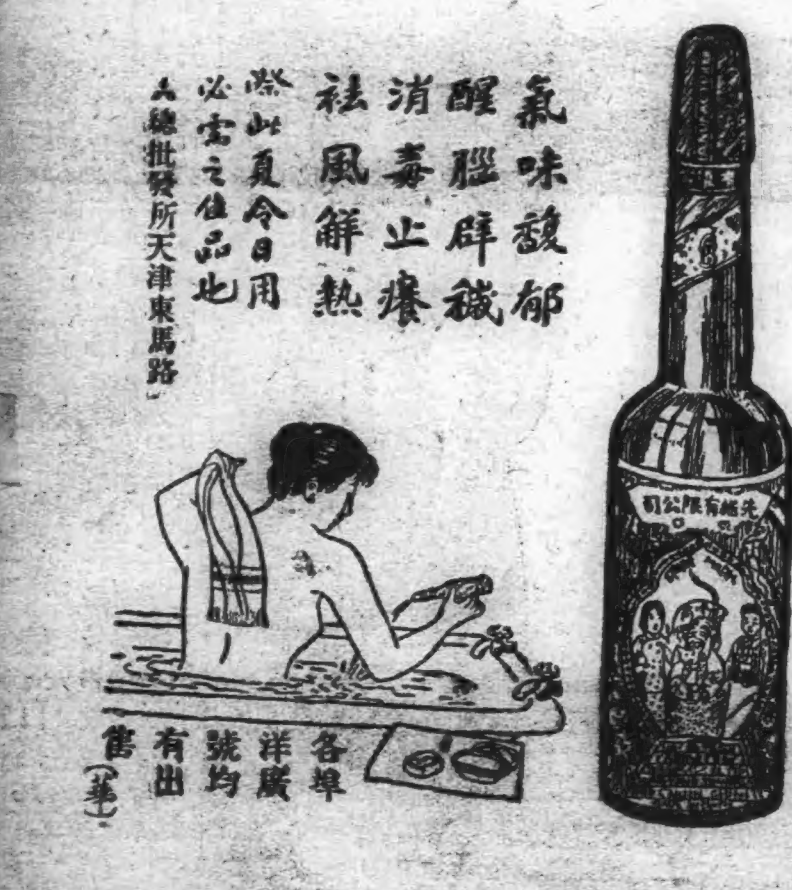 氣味馥郁
醒腦辟穢
消毒止癢
祛風解熱
際此夏令日用
必需之佳品也
總批發所天津東馬路
先施有限公司
各埠
洋廣
號均
有出
售
(華)